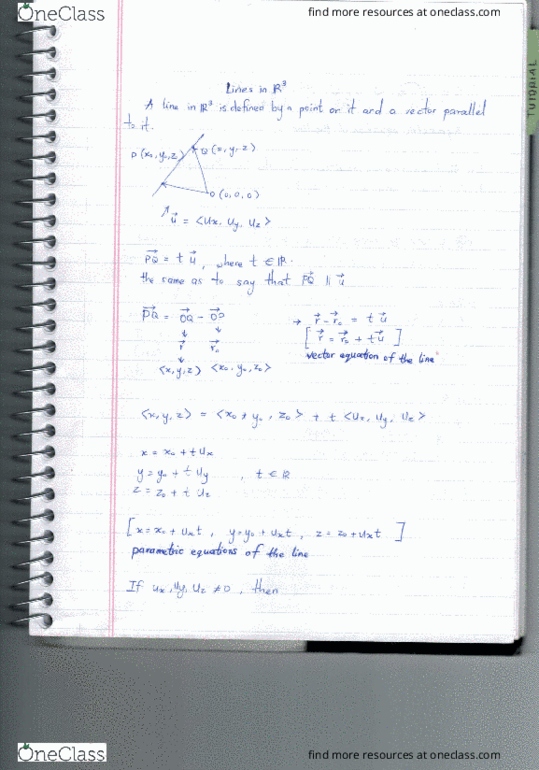 OneClass
find more resources at oneclass.com
TUTORIAL
Lines in ℝ³
A line in ℝ³ is defined by a point on it and a vector parallel
to it.
P(x₀, y₀, z₀) Q(x, y, z)
O(0, 0, 0)
u⃗ = <Ux, Uy, Uz>
PQ⃗ = t u⃗, where t ∈ ℝ.
the same as to say that PQ⃗ ∥ u⃗
PQ⃗ = OQ⃗ - OP⃗ → r⃗ - r⃗₀ = t u⃗
↓ ↓ [ r⃗ = r⃗₀ + tu⃗ ]
r⃗ r⃗₀ vector equation of the line
↓ ↓
<x,y,z> <x₀, y₀, z₀>
<x,y,z> = <x₀, y₀, z₀> + t <Ux, Uy, Uz>
x = x₀ + tUx
y = y₀ + t Uy , t ∈ ℝ
z = z₀ + t Uz
[ x = x₀ + Uxt, y = y₀ + Uxt, z = z₀ + Uxt ]
parametric equations of the line
If Ux, Uy, Uz ≠ 0, then
OneClass
find more resources at oneclass.com